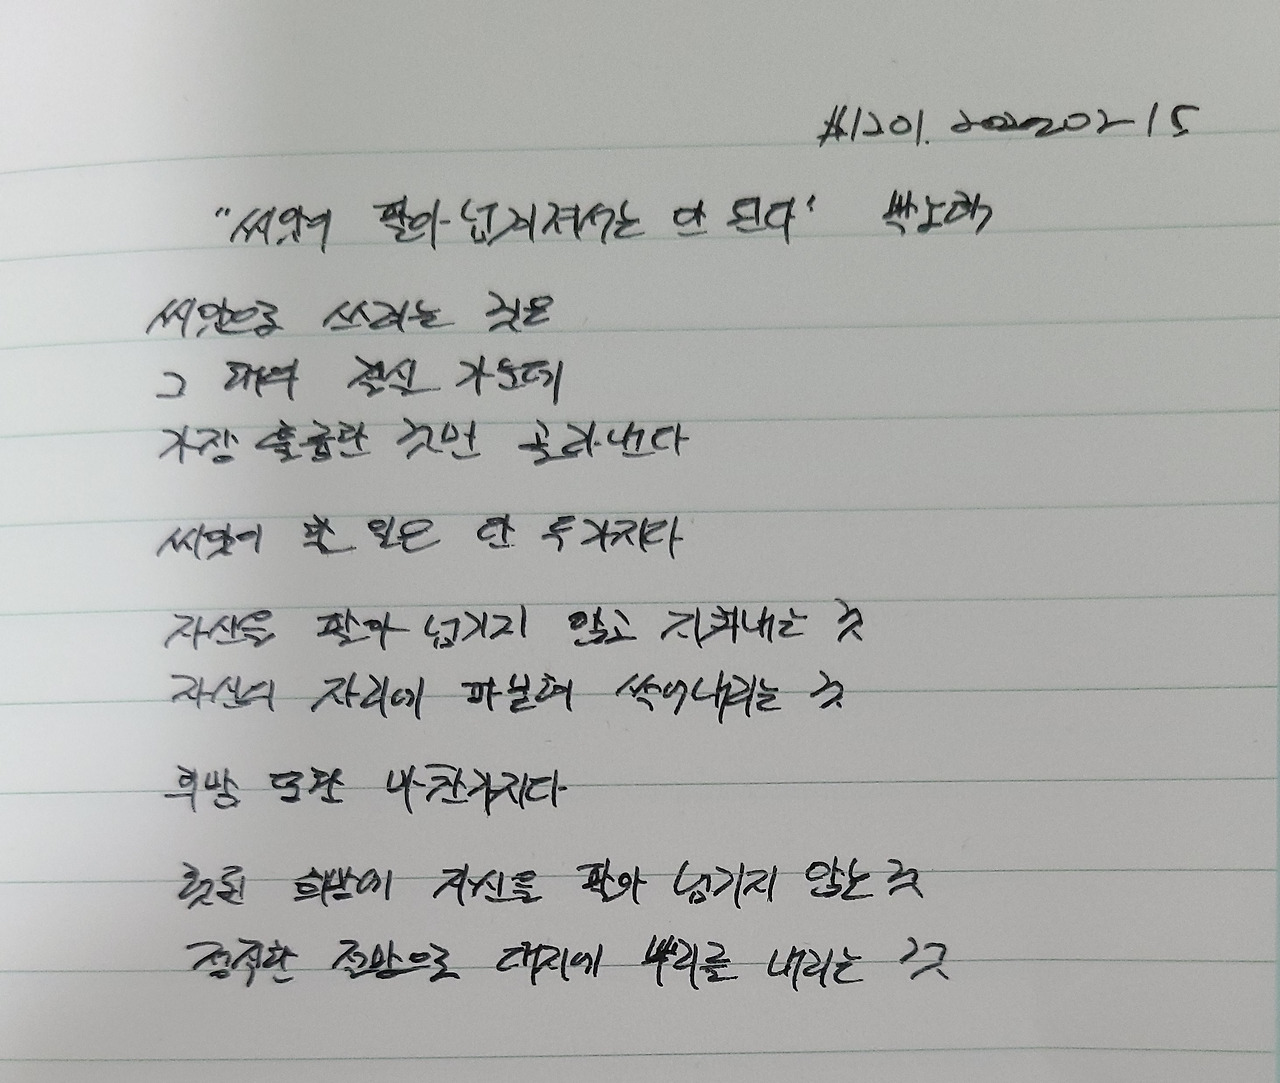 #1201. 20220215
"씨앗이 팔아넘겨져서는 안 된다" 박노해
씨앗으로 쓰려는 것은
그 해의 결실 가운데
가장 훌륭한 것만 골라낸다
씨앗이 할 일은 단 두가지다
자신을 팔아 넘기지 않고 지켜내는 것
자신의 자리에 파묻혀 썩어내리는 것
희망 또한 마찬가지다
헛된 희망에 자신을 팔아 넘기지 않는 것
정직한 절망으로 대지에 뿌리를 내리는 것